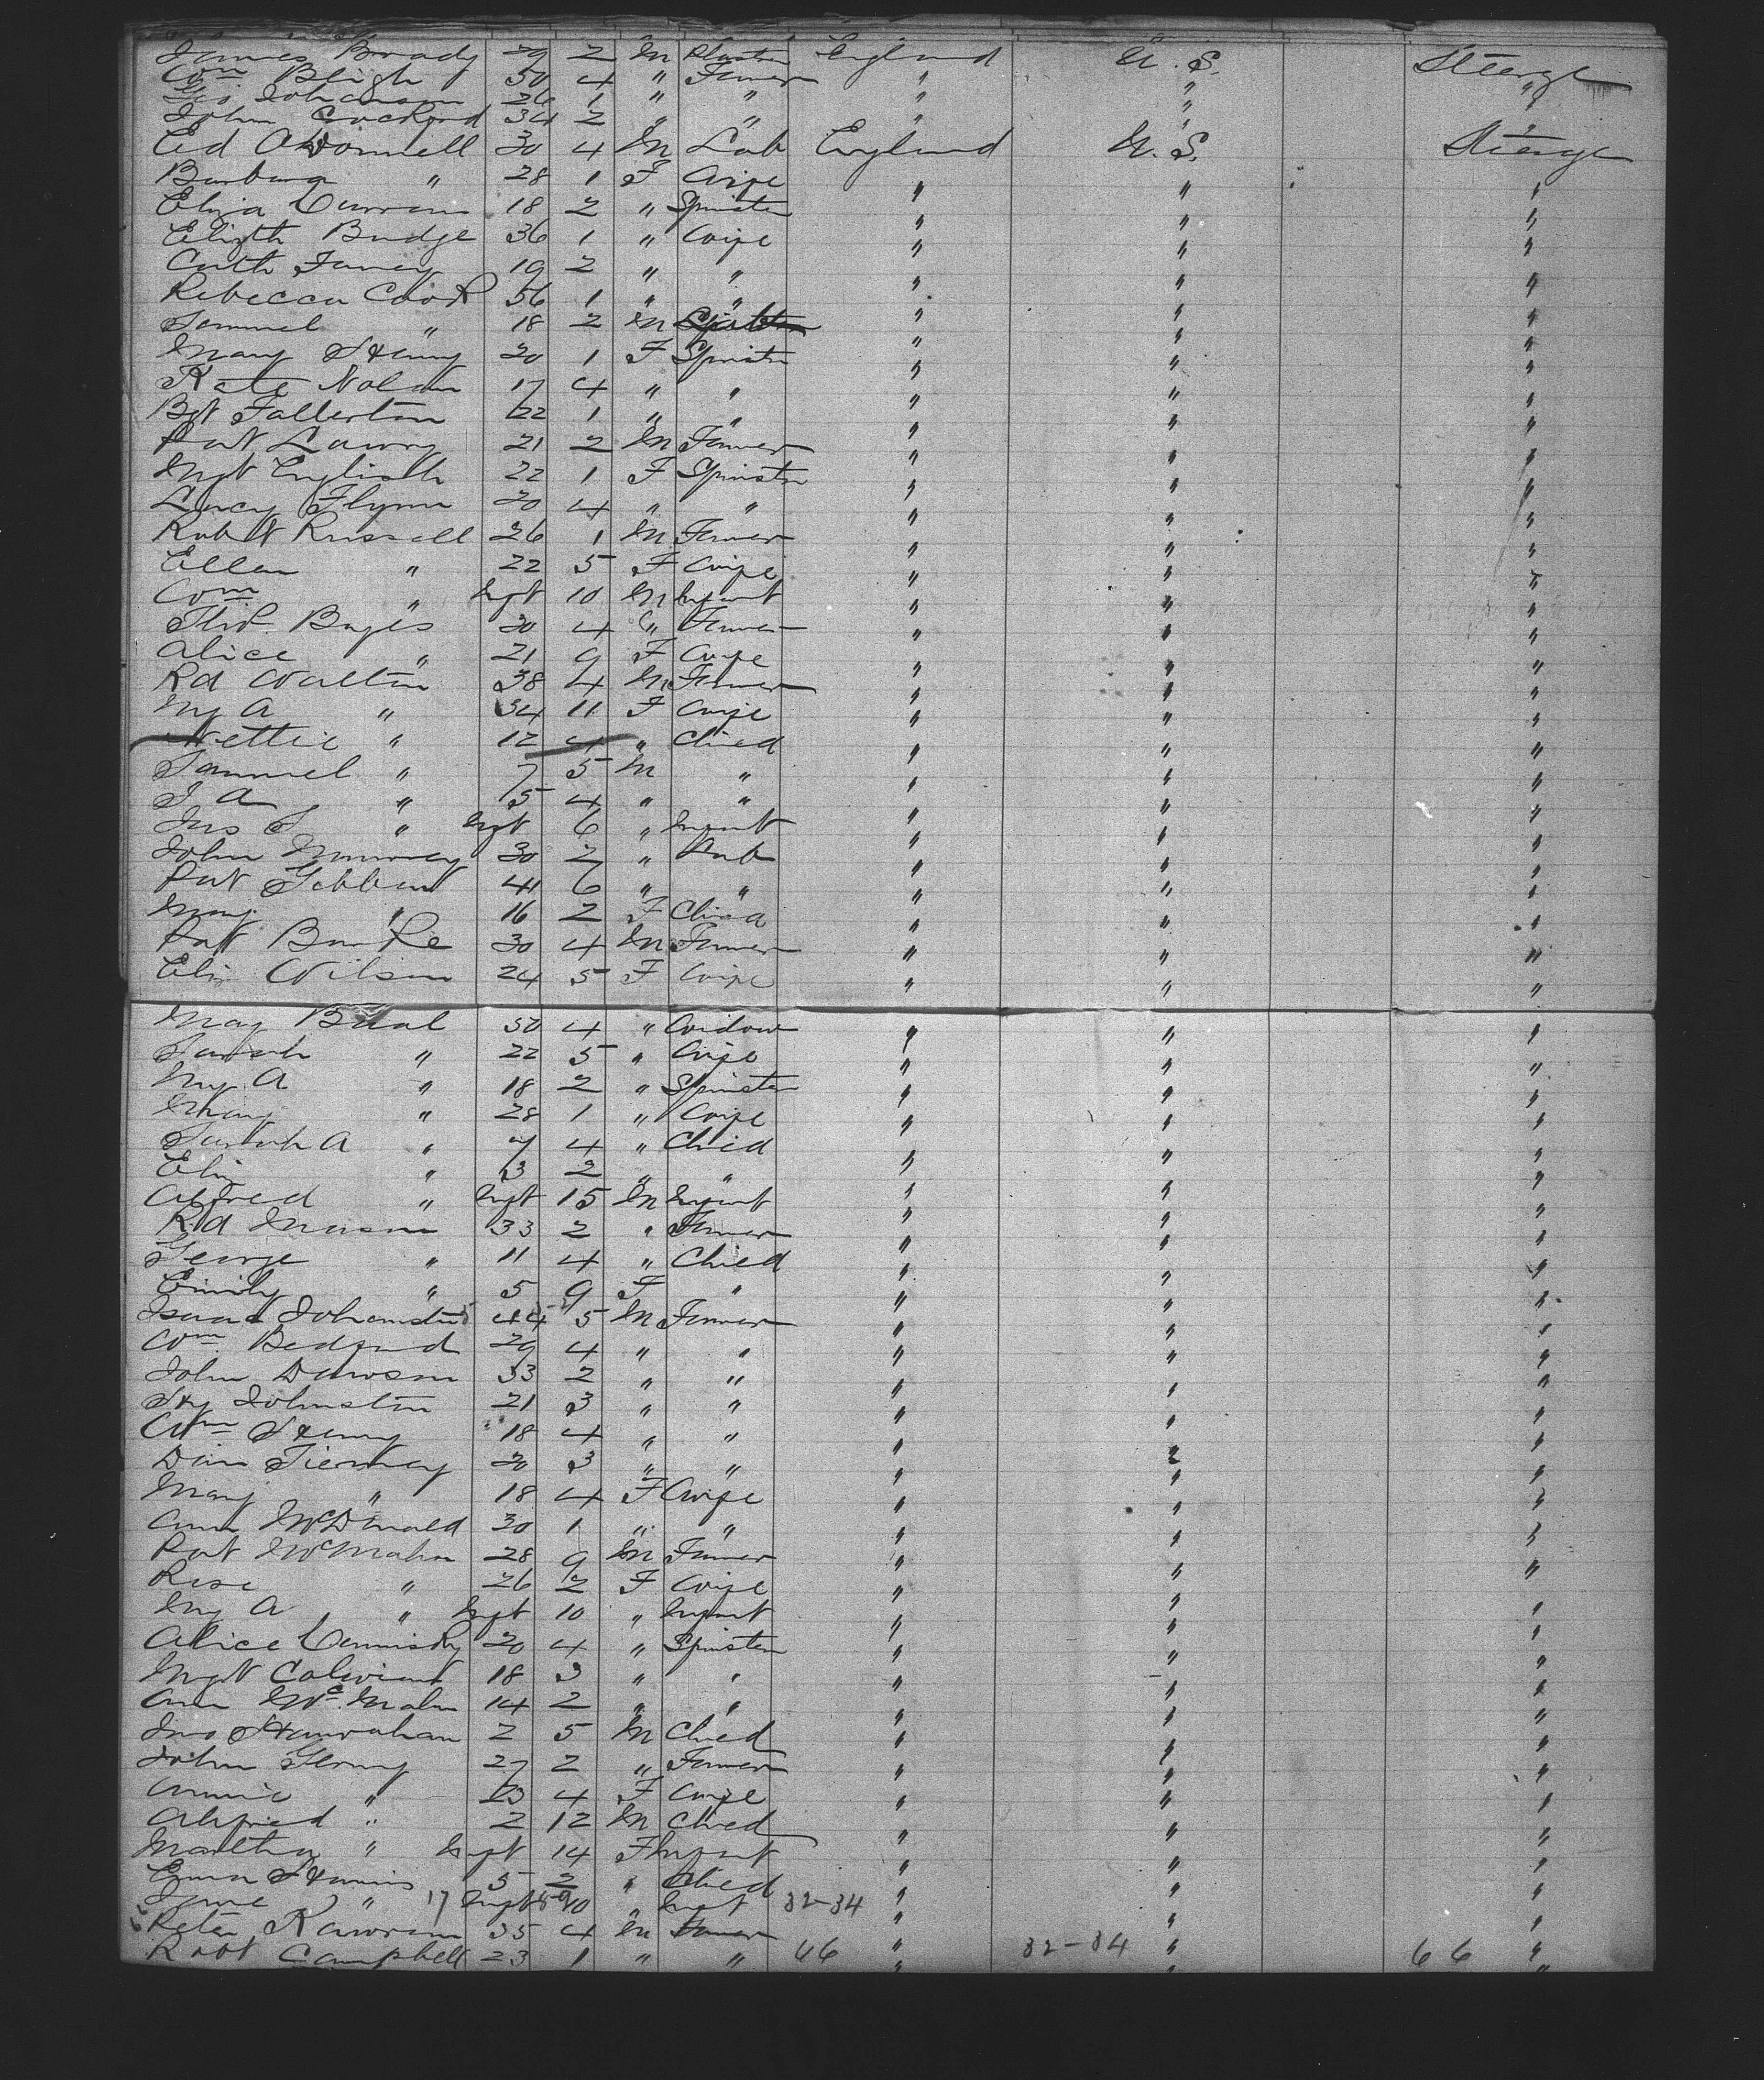 James Brady 29 2 M England U. S. Steerage
Wm Bligh 50 4 " Farmer " " "
Geo Johanson 26 1 " " " "
John Crockford 34 2 " " " " "
Ed O'Donnell 30 4 M Lab England U. S. Steerage
Barbara " 28 1 F Wife " " "
Eliza Curran 18 2 " Spinster " " "
Elizth Budge 36 1 " Wife " " "
Cath Faney 19 2 " " " " "
Rebecca Cook 56 1 " " " " "
Samuel " 18 2 M " " "
Mary Henry 20 1 F Spinster " " "
Kate Nolan 17 4 " " " " "
Bgt Fallerton 22 1 " " " " "
Pat Lawry 21 2 M Farmer " " "
Mgt English 22 1 F Spinster " " "
Lucy Flynn 20 4 " " " " "
Robt Russell 26 1 M Farmer " " "
Ellen " 22 5 F Wife " " "
Wm " Infт 10 M Infant " " "
Thos. Bages 30 4 " Farmer " " "
Alice " 21 9 F Wife " " "
Rd Walton 38 4 M Farmer " " "
My A " 34 11 F Wife " " "
Nettie " 12 4 " Child " " "
Samuel " 7 5 M " " " "
J A " 5 4 " " " " "
Jno S " Inft 6 " Infant " " "
John Murray 30 2 " Lab " " "
Pat Gibbons 41 6 " " " " "
Mary " 16 2 F Child " " "
Pat Burke 30 4 M Farmer " " "
Eliz Wilson 24 5 F Wife " " "
May Beal 50 4 " Widow " " "
Sarah " 22 5 " Wife " " "
My. A " 18 2 " Spinster " " "
Mary " 28 1 " Wife " " "
Sarah A " 7 4 " Child " " "
Eliz " 3 2 " " " " "
Alfred " Inft 15 M Infant " " "
Rd Mason 33 2 " Farmer " " "
George " 11 4 " Child " " "
Emily " 5 9 F " " " "
Isaac Johnston 44 5 M Farmer " " "
Wm. Bedford 29 4 " " " " "
John Dawson 33 2 " " " " "
Hy Johnston 21 3 " " " " "
Wm Henry 18 4 " " " " "
Dan Tiernay 20 3 " " " " "
Mary " 18 4 F Wife " " "
Ann McDonald 30 1 " " " " "
Pat McMahon 28 9 M Farmer " " "
Rose " 26 2 F Wife " " "
My A " Inft 10 " Infant " " "
Alice 20 4 " Spinster " " "
Mgt 18 3 " " " " "
Ann McMahon 14 2 " " " " "
Jno Hanrahan 2 5 M Child " " "
John Gerny 27 2 " Farmer " " "
Annie " 23 4 F Wife " " "
Alfred " 2 12 M Child " " "
Martha " Inft 14 F Infant " " "
Emma 5 2 " Child " " "
Jane " 17 Inft 10 " Inft 32-34 " " "
Peter 35 4 M Farmer " " "
Robt Campbell 23 1 " " 66 " 32-34 " 66 "